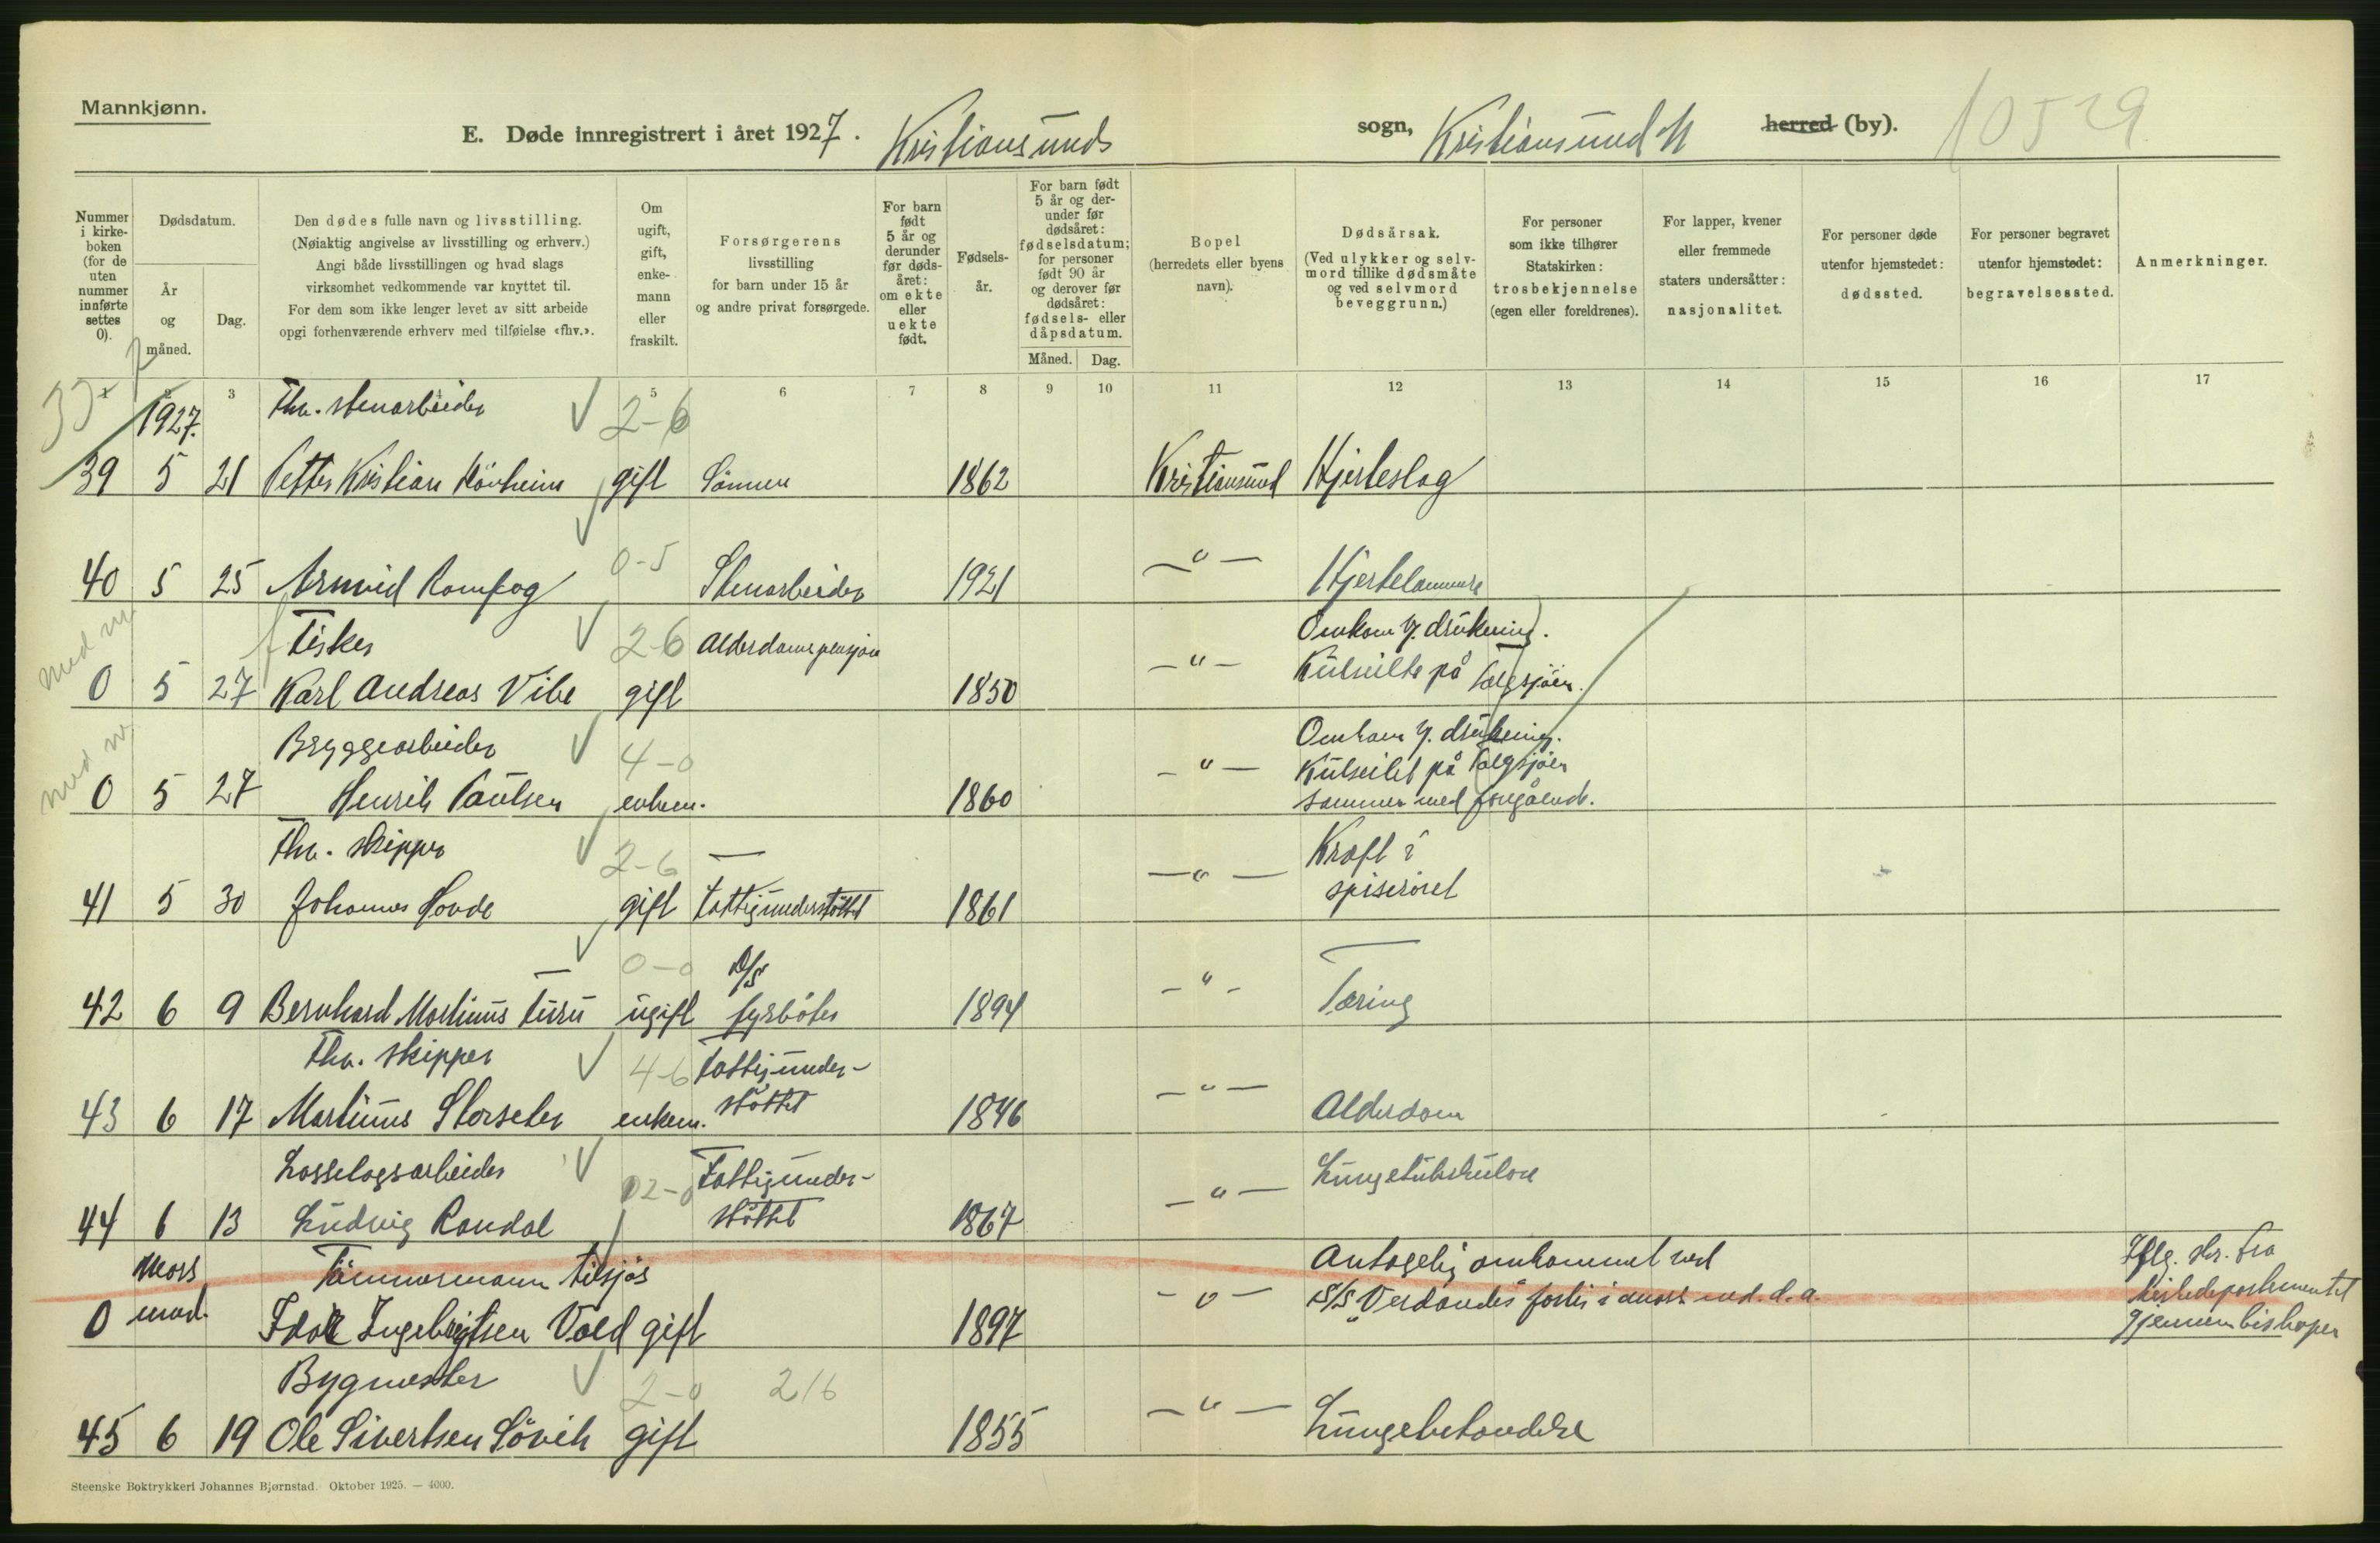 Mannkjønn.
E. Døde innregistrert i året 1927. Kristiansunds sogn, Kristiansund N herred (by). 10529
Nummer i kirke-boken (for de uten nummer innførte settes 0).
Dødsdatum.
År og måned.
Dag.
Den dødes fulle navn og livsstilling.
(Nøiaktig angivelse av livsstilling og erhverv.)
Angi både livsstillingen og hvad slags
virksomhet vedkommende var knyttet til.
For dem som ikke lenger levet av sitt arbeide
opgi forhenværende erhverv med tilføielse «fhv.».
Om ugift, gift, enke-mann eller fraskilt.
Forsørgerens livsstilling for barn under 15 år og andre privat forsørgede.
For barn født 5 år og derunder før døds-året: om ekte eller uekte født.
Fødsels-år.
For barn født 5 år og der-under før dødsåret: fødselsdatum; for personer født 90 år og derover før dødsåret: fødsels- eller dåpsdatum.
Måned. Dag.
Bopel (herredets eller byens navn).
Dødsårsak. (Ved ulykker og selv-mord tillike dødsmåte og ved selvmord beveggrunn.)
For personer som ikke tilhører Statskirken: trosbekjennelse (egen eller foreldrenes).
For lapper, kvener eller fremmede staters undersåtter: nasjonalitet.
For personer døde utenfor hjemstedet: dødssted.
For personer begravet utenfor hjemstedet: begravelsessted.
Anmerkninger.
1 2 3 5 6 7 8 9 10 11 12 13 14 15 16 17
1927. Fhv. stenarbeider 2-6
39 5 21 Petter Kristian gift Sönnen 1862 Kristiansund Hjerteslag
0-5
40 5 25 Arnvid Romfog Stenarbeider 1921 -"- Hjertelammelse
Fisker 2-6 Alderdomspensjon Omkom v. drukning.
0 5 27 Karl Andreas Vibe gift 1850 -"- Kulseilte på Talgsjöen.
Bryggearbeider 4-0 Omkom v. drukning.
0 5 27 Henrik Paulsen enkem. 1860 -"- Kulseilet på Talgsjöen
sammen med foregående.
Fhv. skipper 2-6 — Kreft i
41 5 30 Johannes Hovde gift Fattigunderstöttet 1861 -"- spiseröret
0-0 D/S
42 6 9 Bernhard Martinus Furu ugift fyrböter 1894 -"- Tæring
Fhv. skipper 4-6 Fattigunder-
43 6 17 Martinus Storseter enkem. støttet 1846 -"- Alderdom
Losselagsarbeider 2-0 Fattigunder-
44 6 13 Ludvig Randal støttet 1867 -"- Lungetuberkulose
Mars Tömmermann tilsjös Antagelig omkommet ved Iflg. skr. fra
0 mnd. Idar Ingebrigtsen Vold gift 1897 -"- S/S "Verdandes" forlis i mars mnd. d.a. kirkedepartementet
gjennem biskopen
Bygmester 2-0 216
45 6 19 Ole Sivertsen Sövik gift 1855 -"- Lungebetændelse
Steenske Boktrykkeri Johannes Bjørnstad. Oktober 1925. — 4000.